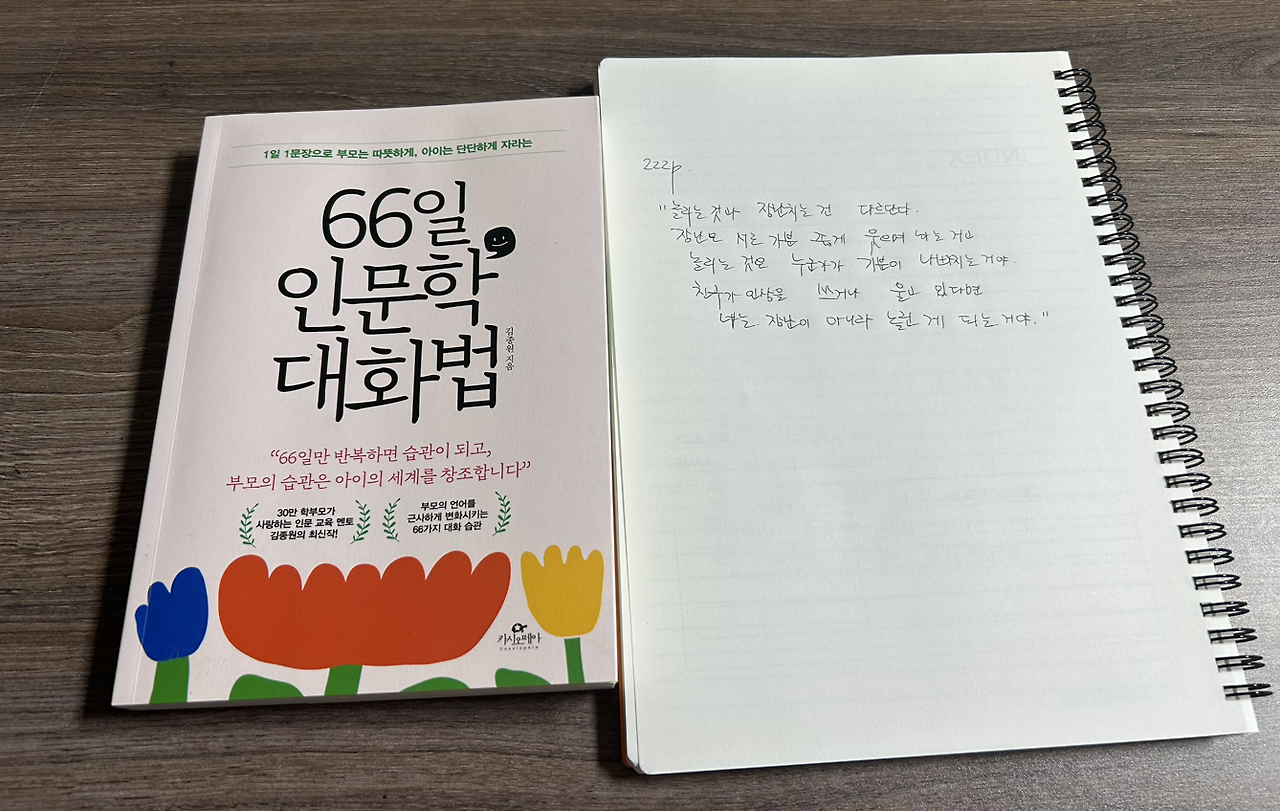 1일 1문장으로 부모는 따뜻하게, 아이는 단단하게 자라는
66일
인문학
대화법
김종원 지음
“66일만 반복하면 습관이 되고,
부모의 습관은 아이의 세계를 창조합니다”
30만 학부모가
사랑하는 인문 교육 멘토
김종원의 최신작!
부모의 언어를
근사하게 변화시키는
66가지 대화 습관
카시오페아
Cassiopeia
222p.
"놀리는 것과 장난치는 건 다르단다.
장난은 서로 기분 좋게 웃으며 하는 거고
놀리는 것은 누군가가 기분이 나빠지는 거야.
친구가 인상을 쓰거나 울고 있다면
너는 장난이 아니라 놀린 게 되는 거야."
INDEX